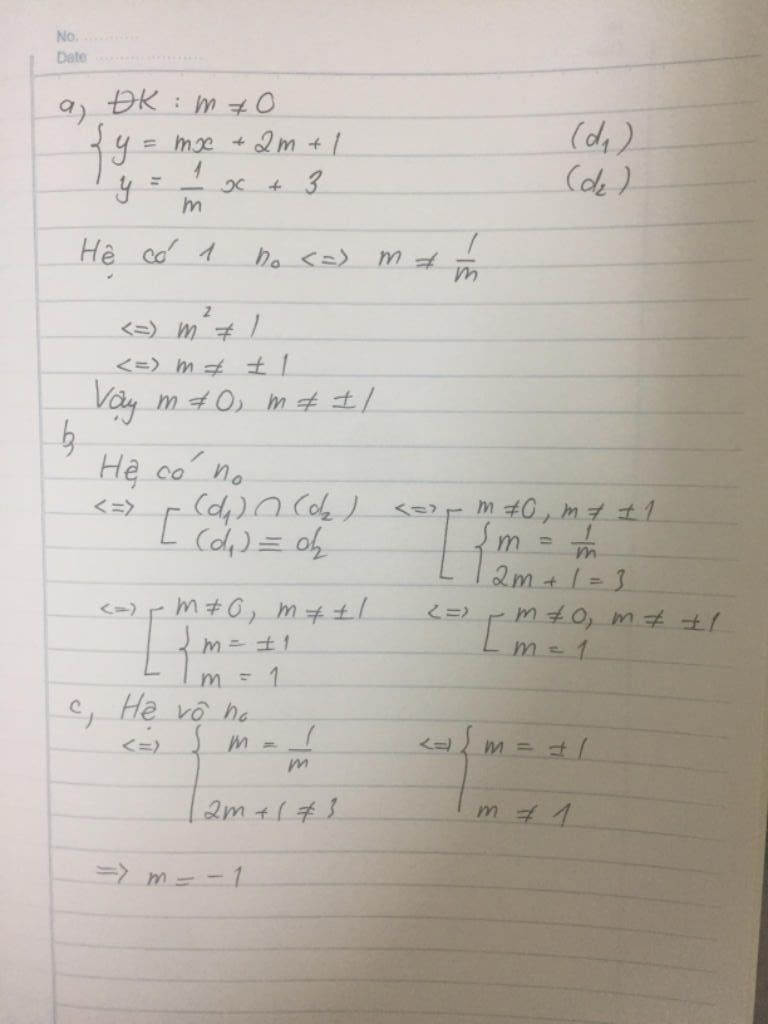 No. ............
Date ........................
a, ĐK : m ≠ 0
{ y = mx + 2m + 1 (d₁)
y = 1/m x + 3 (d₂)
Hệ có 1 n₀ <=> m ≠ 1/m
<=> m² ≠ 1
<=> m ≠ ±1
Vậy m ≠ 0, m ≠ ±1
b,
Hệ có n₀
<=> [ (d₁) ∩ (d₂) <=> [ m ≠ 0, m ≠ ±1
(d₁) ≡ d₂ { m = 1/m
2m + 1 = 3
<=> [ m ≠ 0, m ≠ ±1 <=> [ m ≠ 0, m ≠ ±1
{ m = ±1 m = 1
m = 1
c, Hệ vô n₀
<=> { m = 1/m <=> { m = ±1
2m + 1 ≠ 3 m ≠ 1
=> m = -1